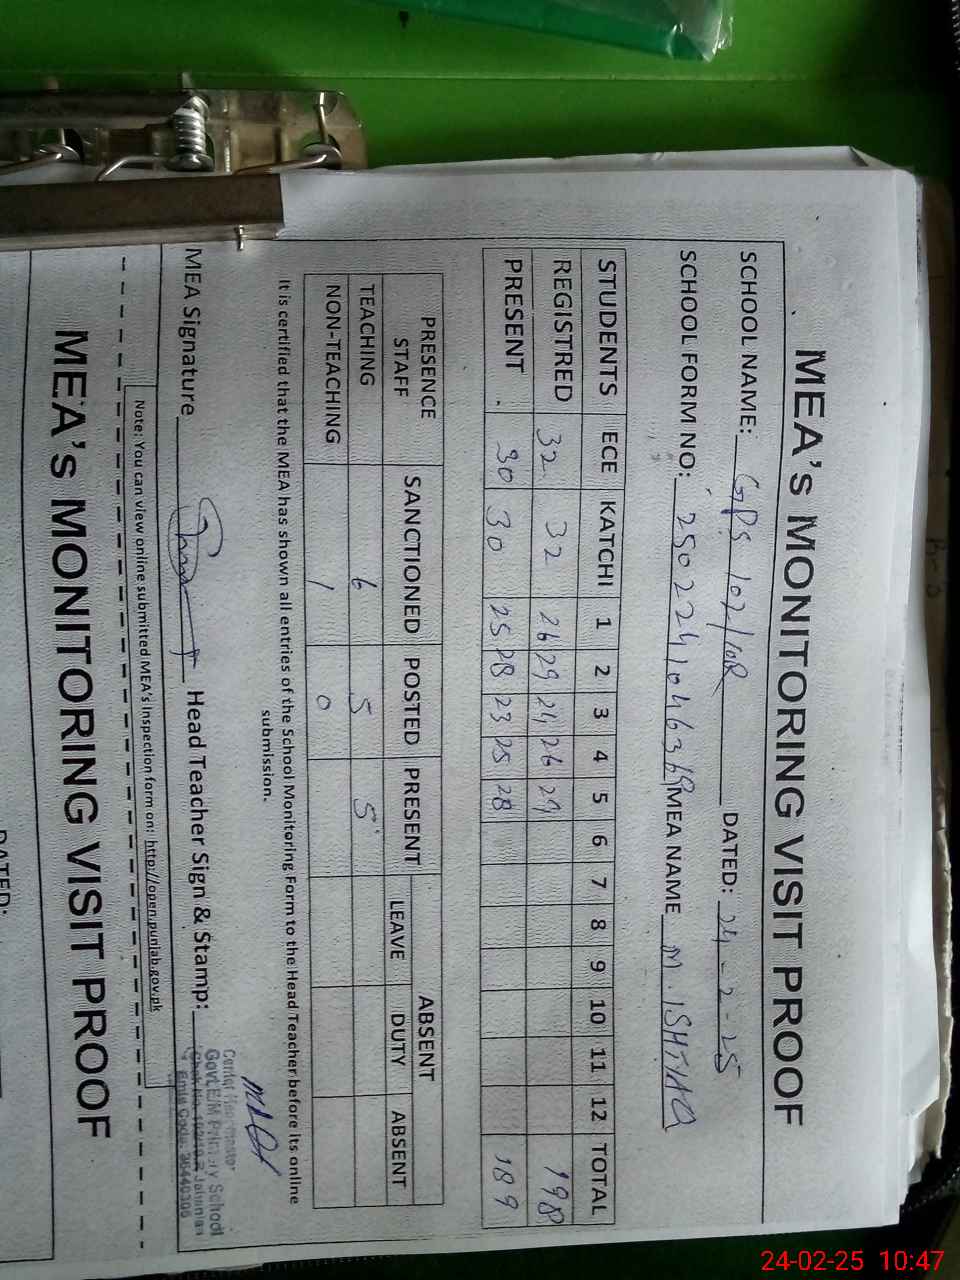 MEA's MONITORING VISIT PROOF
SCHOOL NAME: GPS 102/10R DATED: 24-2-25
SCHOOL FORM NO: MEA NAME M. ISHTIAQ
STUDENTS ECE KATCHI 1 2 3 4 5 6 7 8 9 10 11 12 TOTAL
REGISTRED 32 32 26 29 24 26 29 198
PRESENT 30 30 25 28 23 25 28 189
PRESENCE ABSENT
STAFF SANCTIONED POSTED PRESENT LEAVE DUTY ABSENT
TEACHING 6 5 5
NON-TEACHING 1 0
It is certified that the MEA has shown all entries of the School Monitoring Form to the Head Teacher before its online
submission.
MEA Signature Head Teacher Sign & Stamp:
Govt. E/M Primary School
Jahanian
Emis Code: 36440306
Note: You can view online submitted MEA's Inspection form on: http://open.punjab.gov.pk
MEA's MONITORING VISIT PROOF
DATED:
24-02-25 10:47